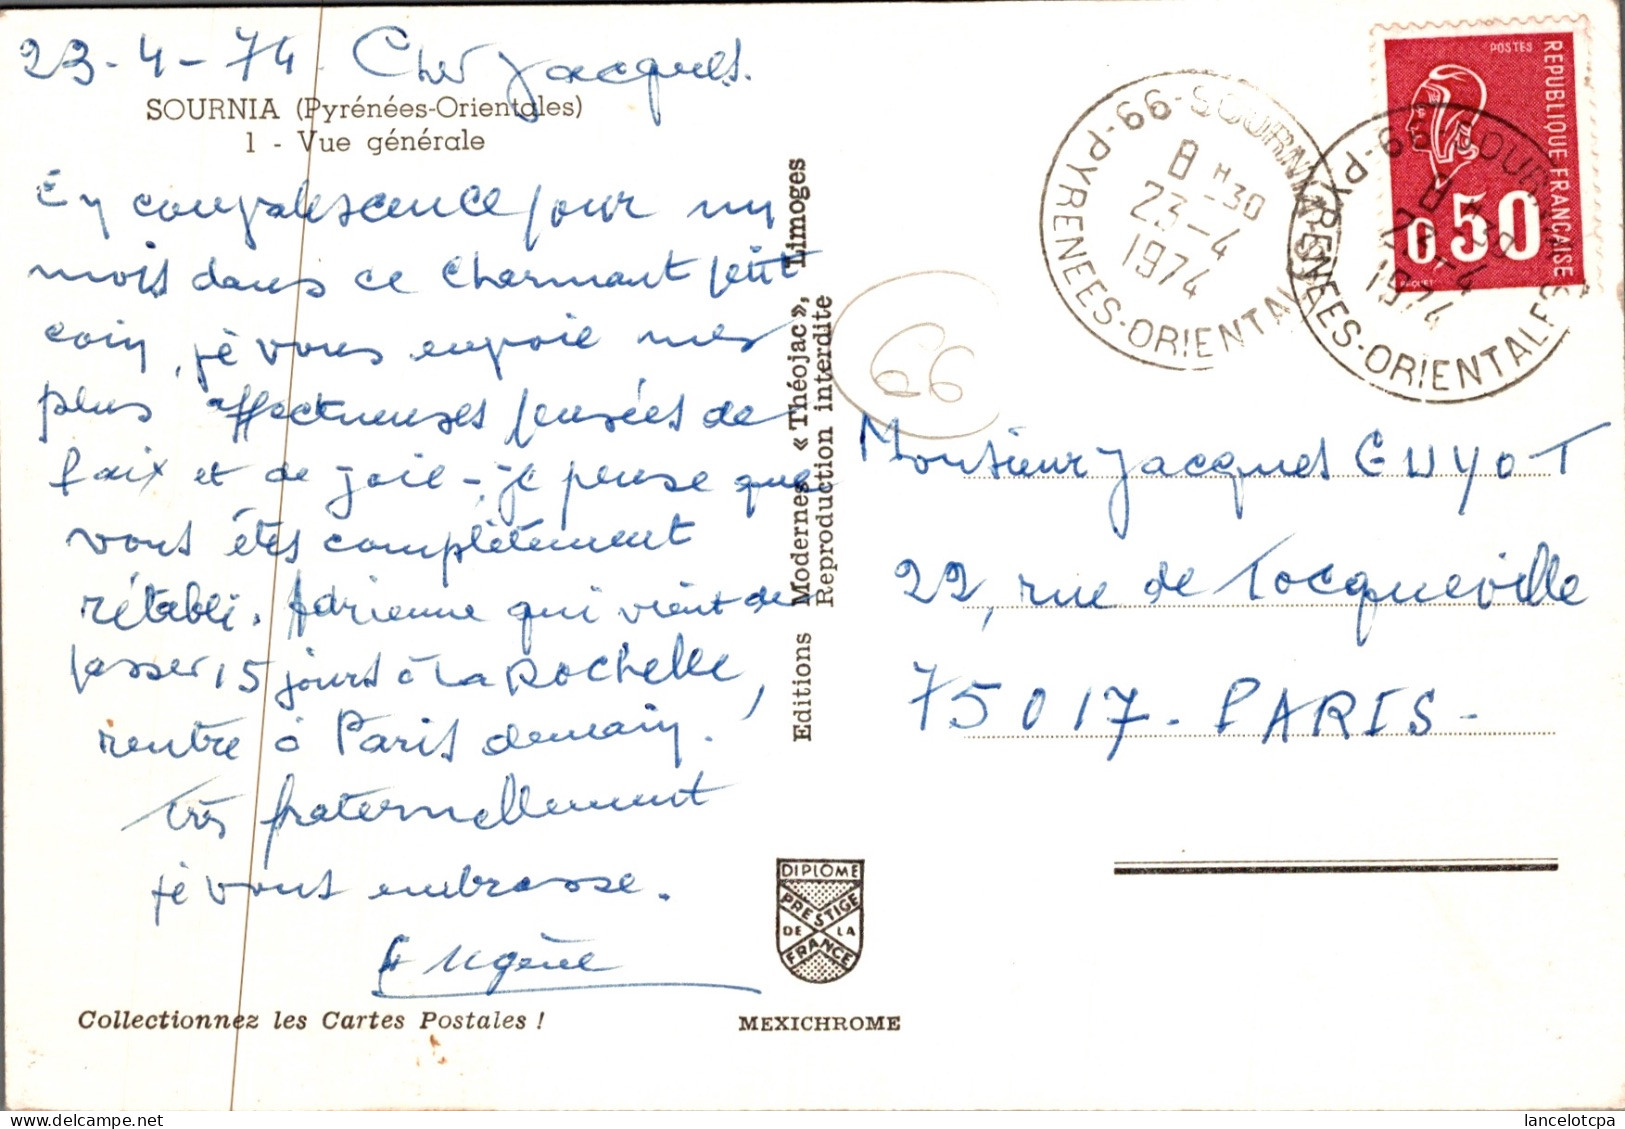 23-4-74. Cher Jacques.
SOURNIA (Pyrénées-Orientales)
1 - Vue générale
En convalescence pour un
mois dans ce charmant petit
coin, je vous envoie mes
plus affectueuses pensées de
paix et de joie -, je pense que
vous êtes complètement
rétabli. Adrienne qui vient de
passer 15 jours à La Rochelle,
rentre à Paris demain.
Très fraternellement
je vous embrasse.
Eugène
Collectionnez les Cartes Postales !
Editions Modernes « Théojac », Limoges
Reproduction interdite
DIPLOME
PRESTIGE
DE LA
FRANCE
MEXICHROME
66
66-SOURNIA
8 H 30
23-4
1974
PYRENEES-ORIENTALES
66-SOURNIA
8 H 30
23-4
1974
PYRENEES-ORIENTALES
POSTES
REPUBLIQUE FRANÇAISE
0,50
BEQUET
Monsieur Jacques GUYOT
22, rue de Tocqueville
75017 - PARIS -
lancelotcpa